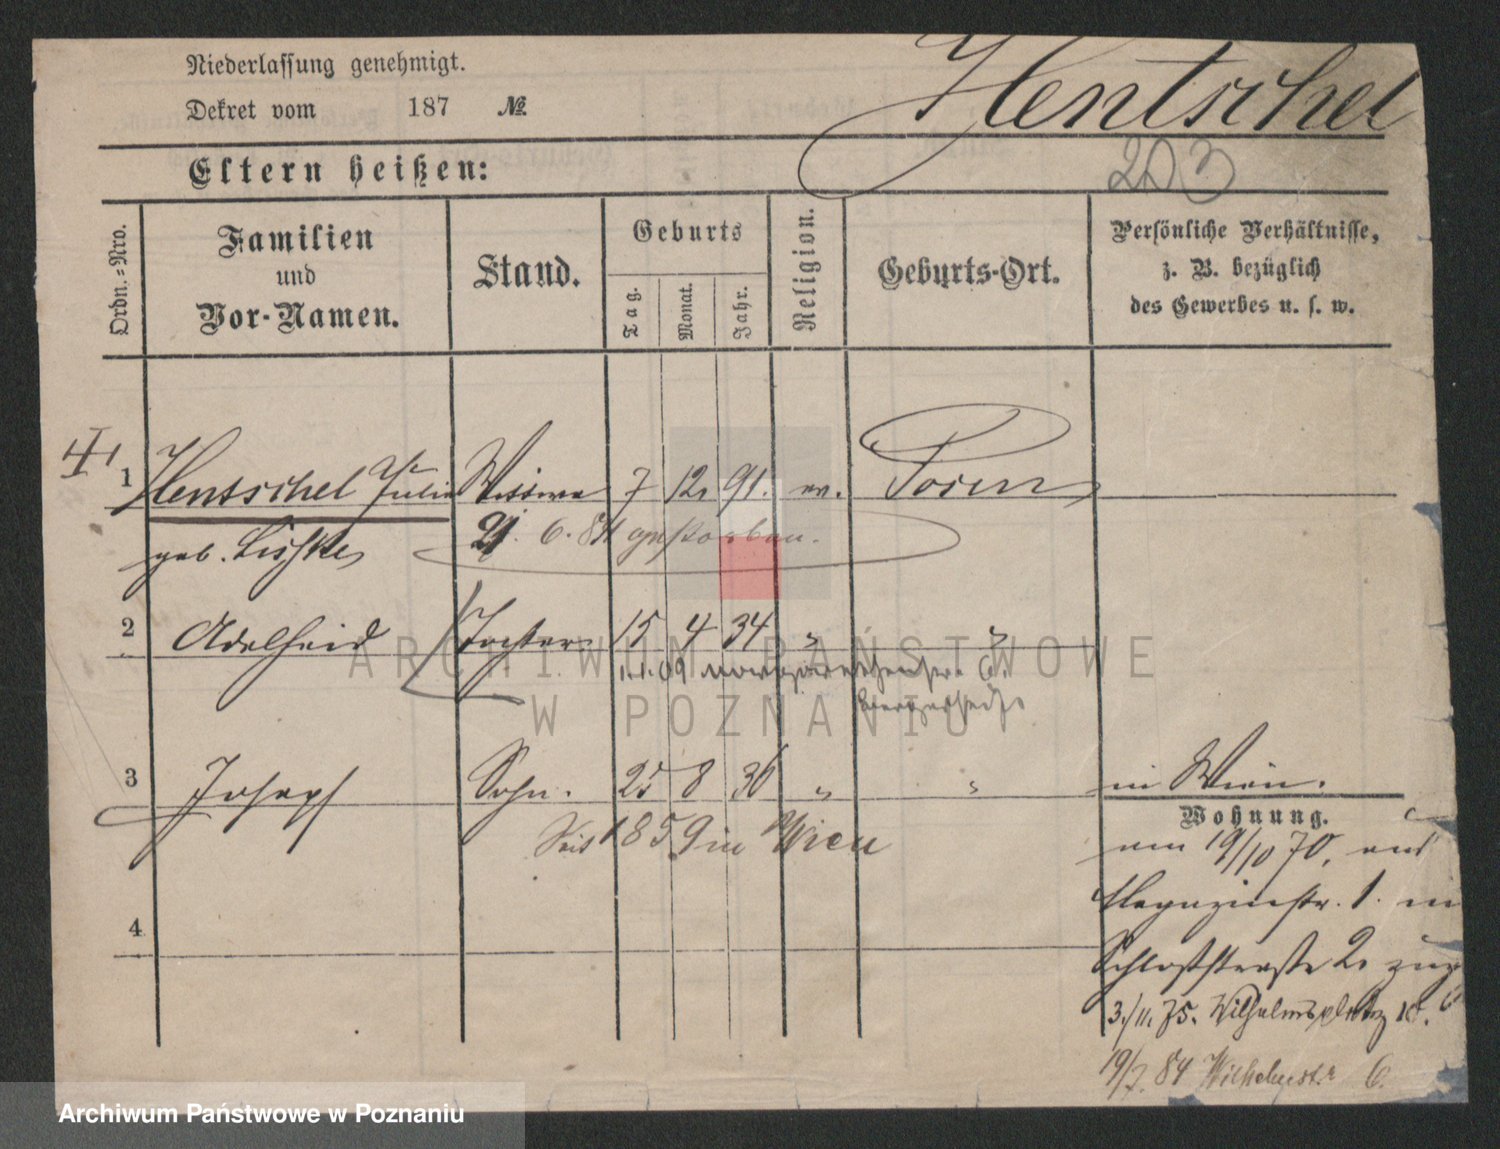 Niederlassung genehmigt.
Dekret vom 187 №.
Hentschel
203
Eltern heißen:
Ordn.-Nro.
Familien
und
Vor-Namen.
Stand.
Geburts
Tag.
Monat.
Jahr.
Religion.
Geburts-Ort.
Persönliche Verhältnisse,
z. B. bezüglich
des Gewerbes u. s. w.
1 Hentschel Julie Wittwe 7 12 91. ev. Posen
geb. 6. 84 gestorben.
2 Adelheid Tochter 15 4 34 "  "
1.1.09
3 Joseph Sohn. 25 8 36 " " in Wien.
Seit 1859 in Wien
Wohnung.
am 19/10 70. aus
Magazinstr. 1. in
Schloßstraße 2 zug
4
3./11. 75. Wilhelmsplatz 18.
19/7. 84 Wilhelmstr 6.
ARCHIWUM PAŃSTWOWE
W POZNANIU
Archiwum Państwowe w Poznaniu